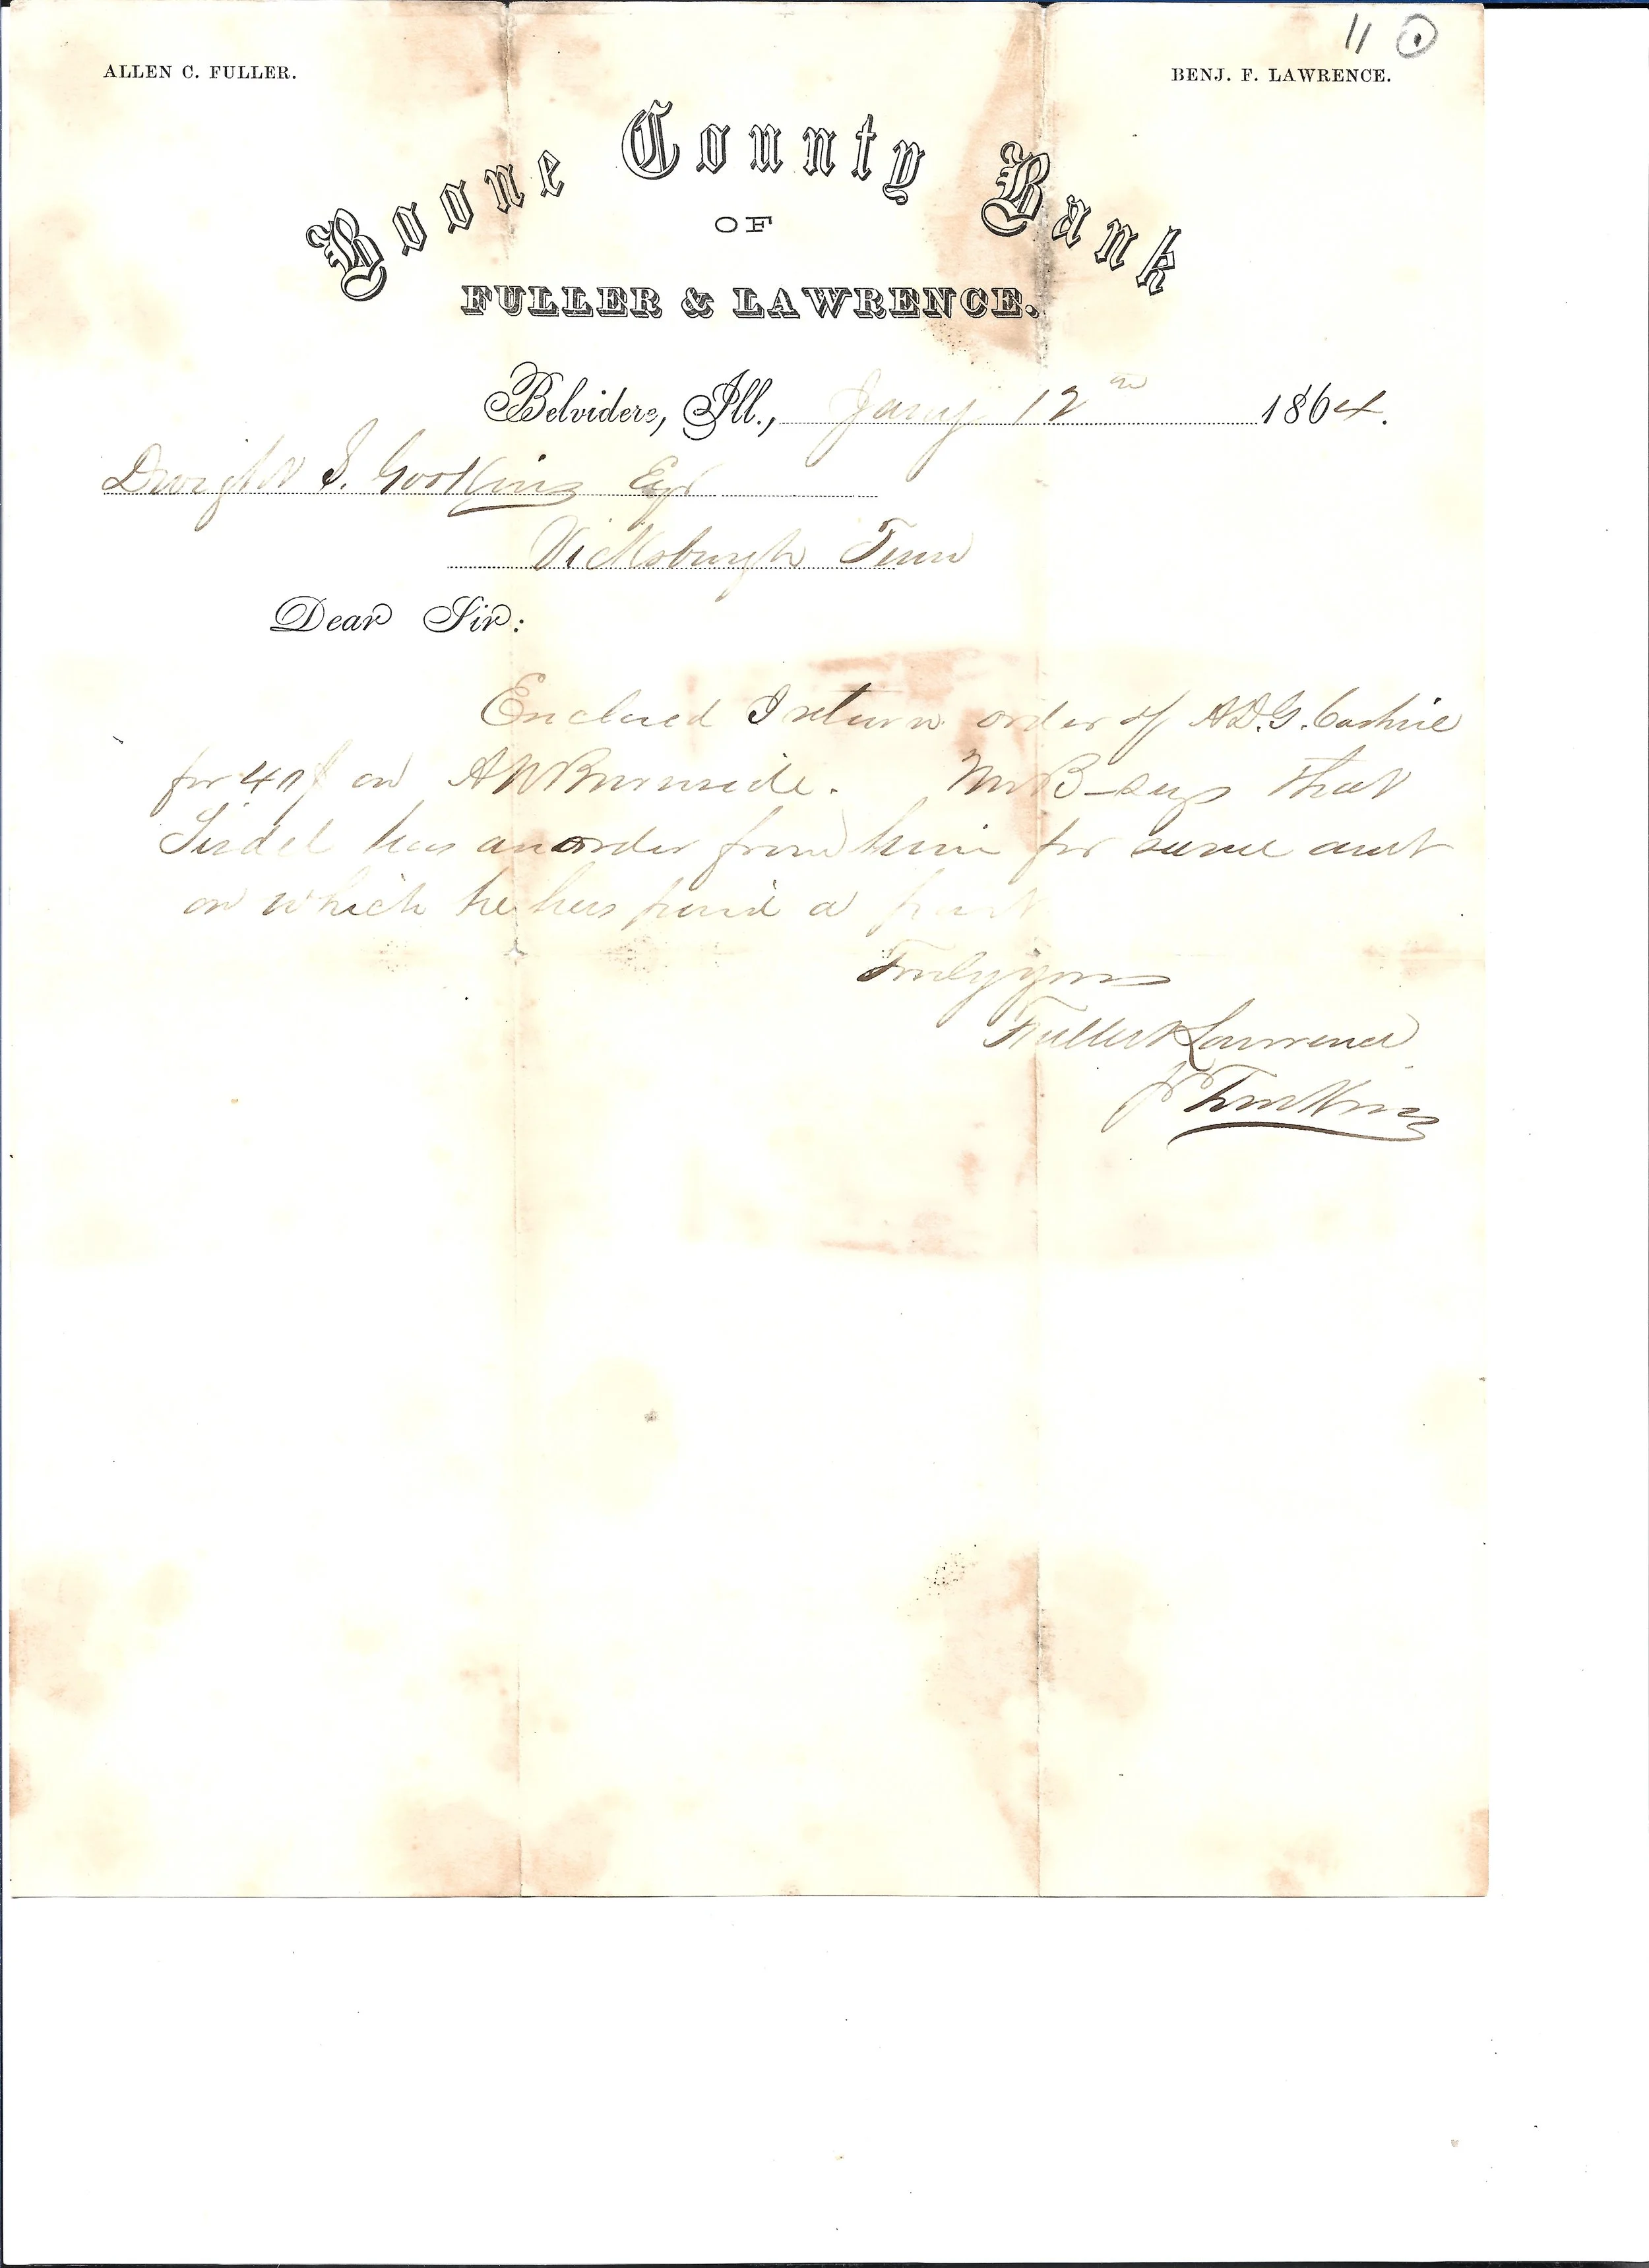 11 ①
ALLEN C. FULLER.
BENJ. F. LAWRENCE.
Boone County Bank
OF
FULLER & LAWRENCE.
Belvidere, Ill., Jany 12th 1864.
Dwight S. Gookins Esqr
Vicksburgh Tenn
Dear Sir:
Enclosed I return order of A.D.G. Cashire
for on Burnside. Mr B— says that
has an order from him for same amt
on which he has paid a part
Truly yours
Fuller & Lawrence